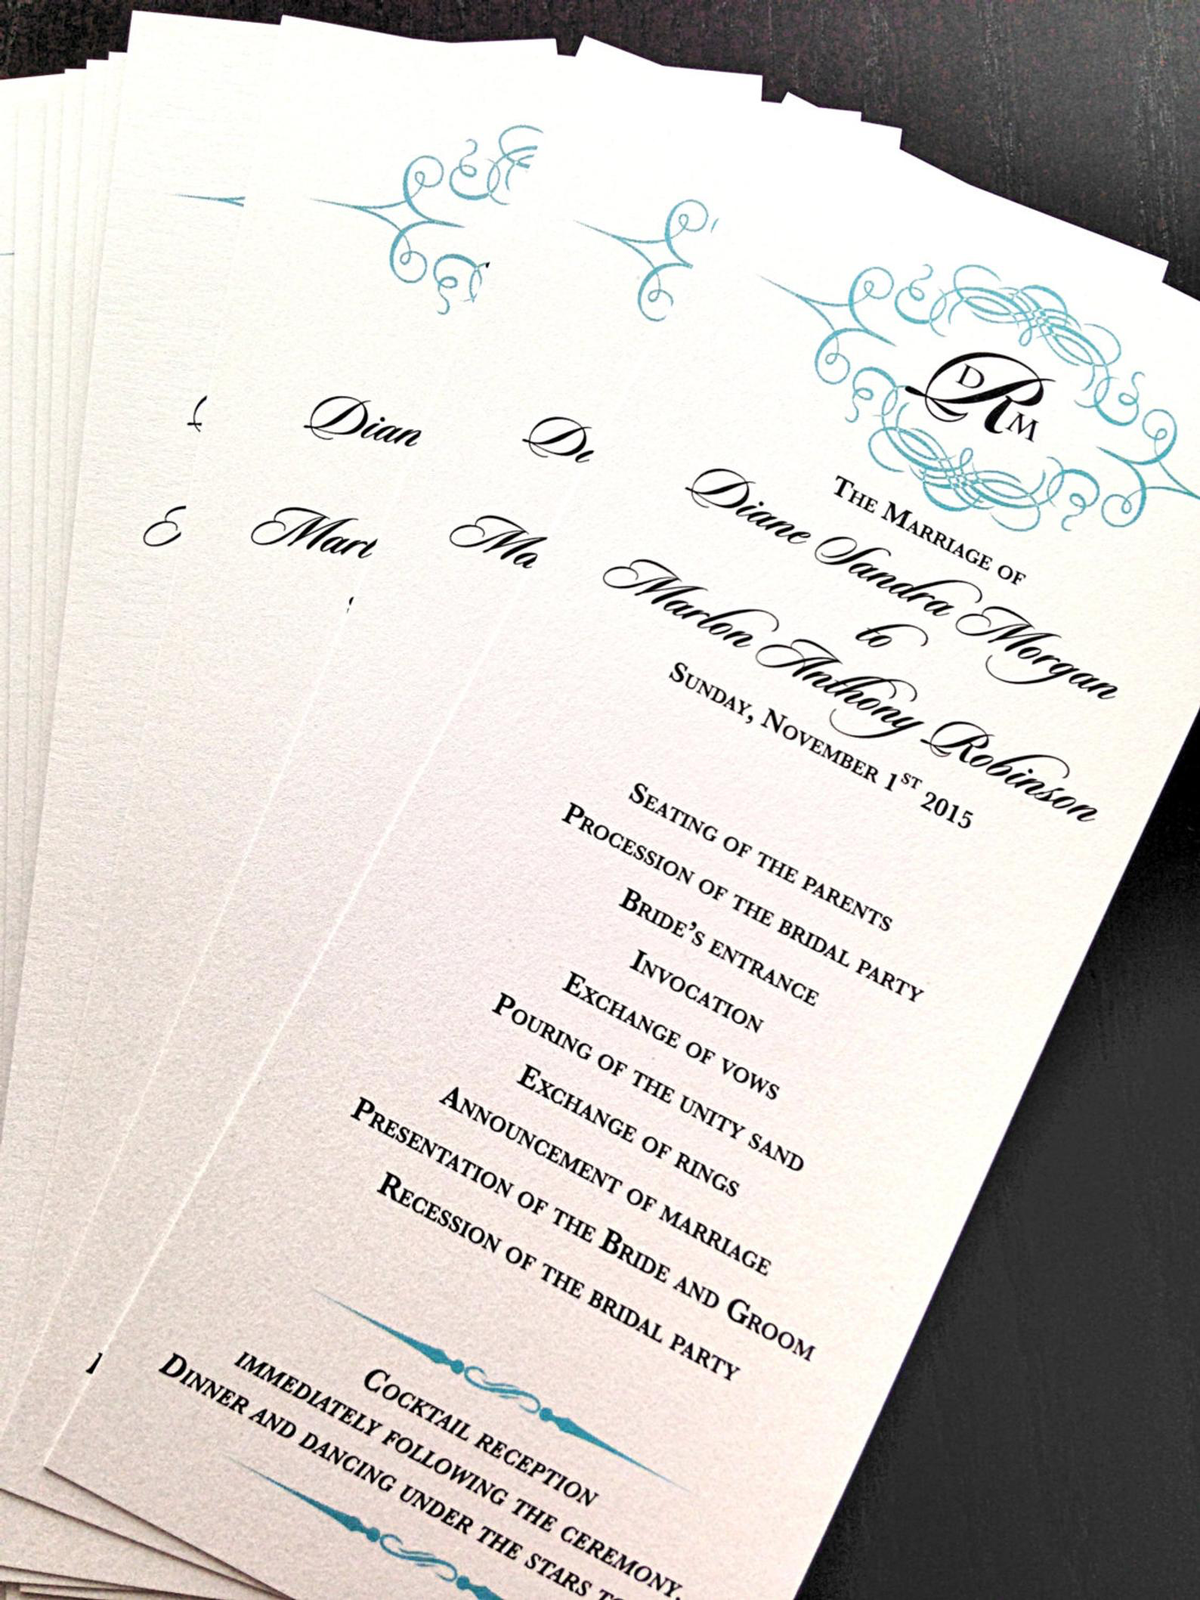 DRM
The Marriage of
Diane Sandra Morgan
to
Marlon Anthony Robinson
Sunday, November 1st 2015
Seating of the parents
Procession of the bridal party
Bride's entrance
Invocation
Exchange of vows
Pouring of the unity sand
Exchange of rings
Announcement of marriage
Presentation of the Bride and Groom
Recession of the bridal party
Cocktail reception
immediately following the ceremony.
Dinner and dancing under the stars
Dian
Mart